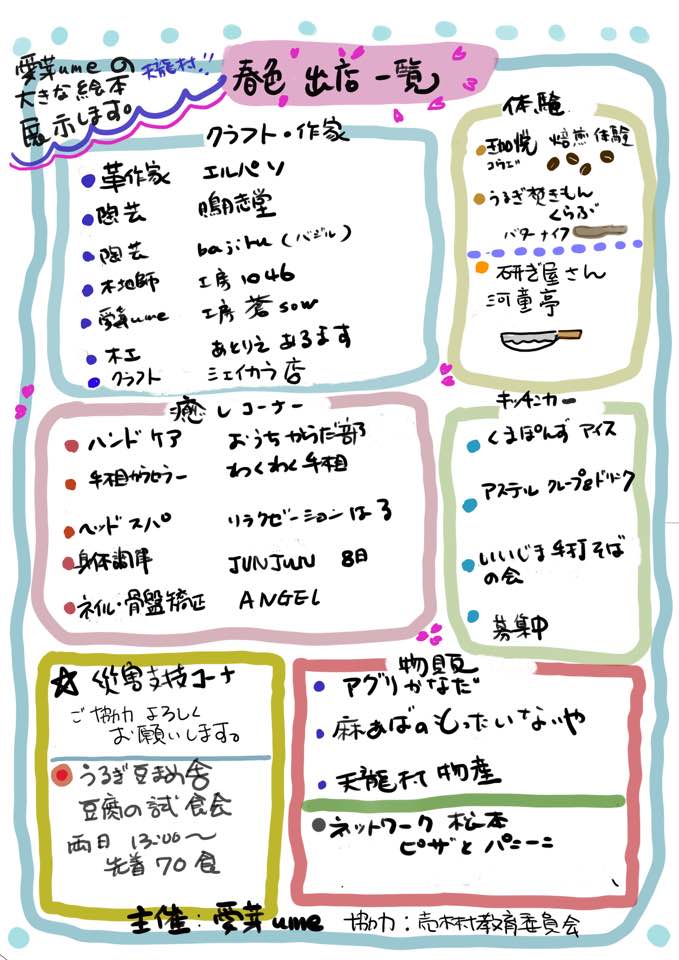 愛芽umeの
大きな絵本
展示します。
天龍村!!
春色 出店一覧
クラフト・作家
革作家 エルパソ
陶芸 鳴志堂
陶芸 bajiru(バジル)
木地師 工房1046
愛芽ume 工房蒼sow
木工 あとりえ あるます
クラフト シェイカラ店
体験
珈悦 焙煎体験
コウエツ
うるぎ焚きもん
くらぶ
バターナイフ
研ぎ屋さん
河童亭
癒しコーナー
ハンドケア おうちからだ部
手相カウンセラー わくわく手相
ヘッドスパ リラクゼーションはる
身体調律 JUNJUN 8日
ネイル・骨盤矯正 ANGEL
キッチンカー
くまぽんず アイス
アステル クレープ&ドリンク
いいじま手打そば
の会
募集中
☆ 災害支援コーナ
ご協力よろしく
お願いします。
うるぎ豆まめ舎
豆腐の試食会
両日 13:00〜
先着70食
物販
アグリかなだ
麻あばのもったいないや
天龍村 物産
ネットワーク 松本
ピザと パニーニ
主催:愛芽ume 協力:売木村教育委員会